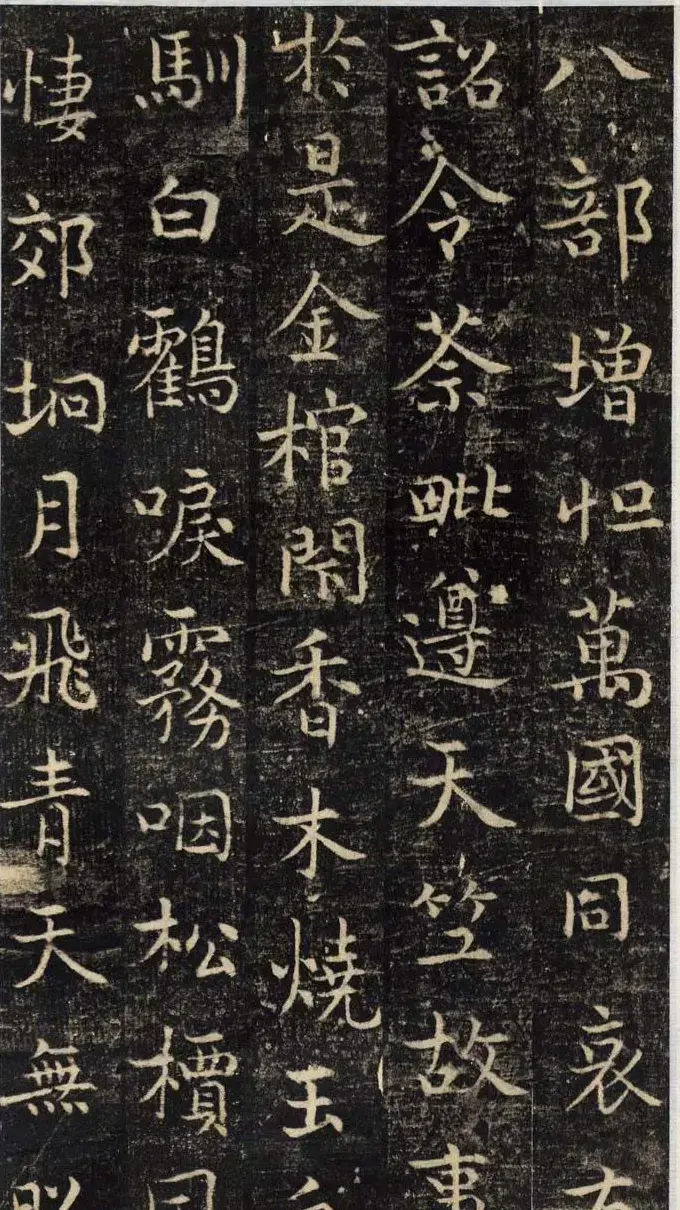 八部增怛萬國同哀有
詔令荼毗遵天竺故事
於是金棺閇香木燒玉
馴白鶴唳霧咽松檟
悽郊坰月飛青天無